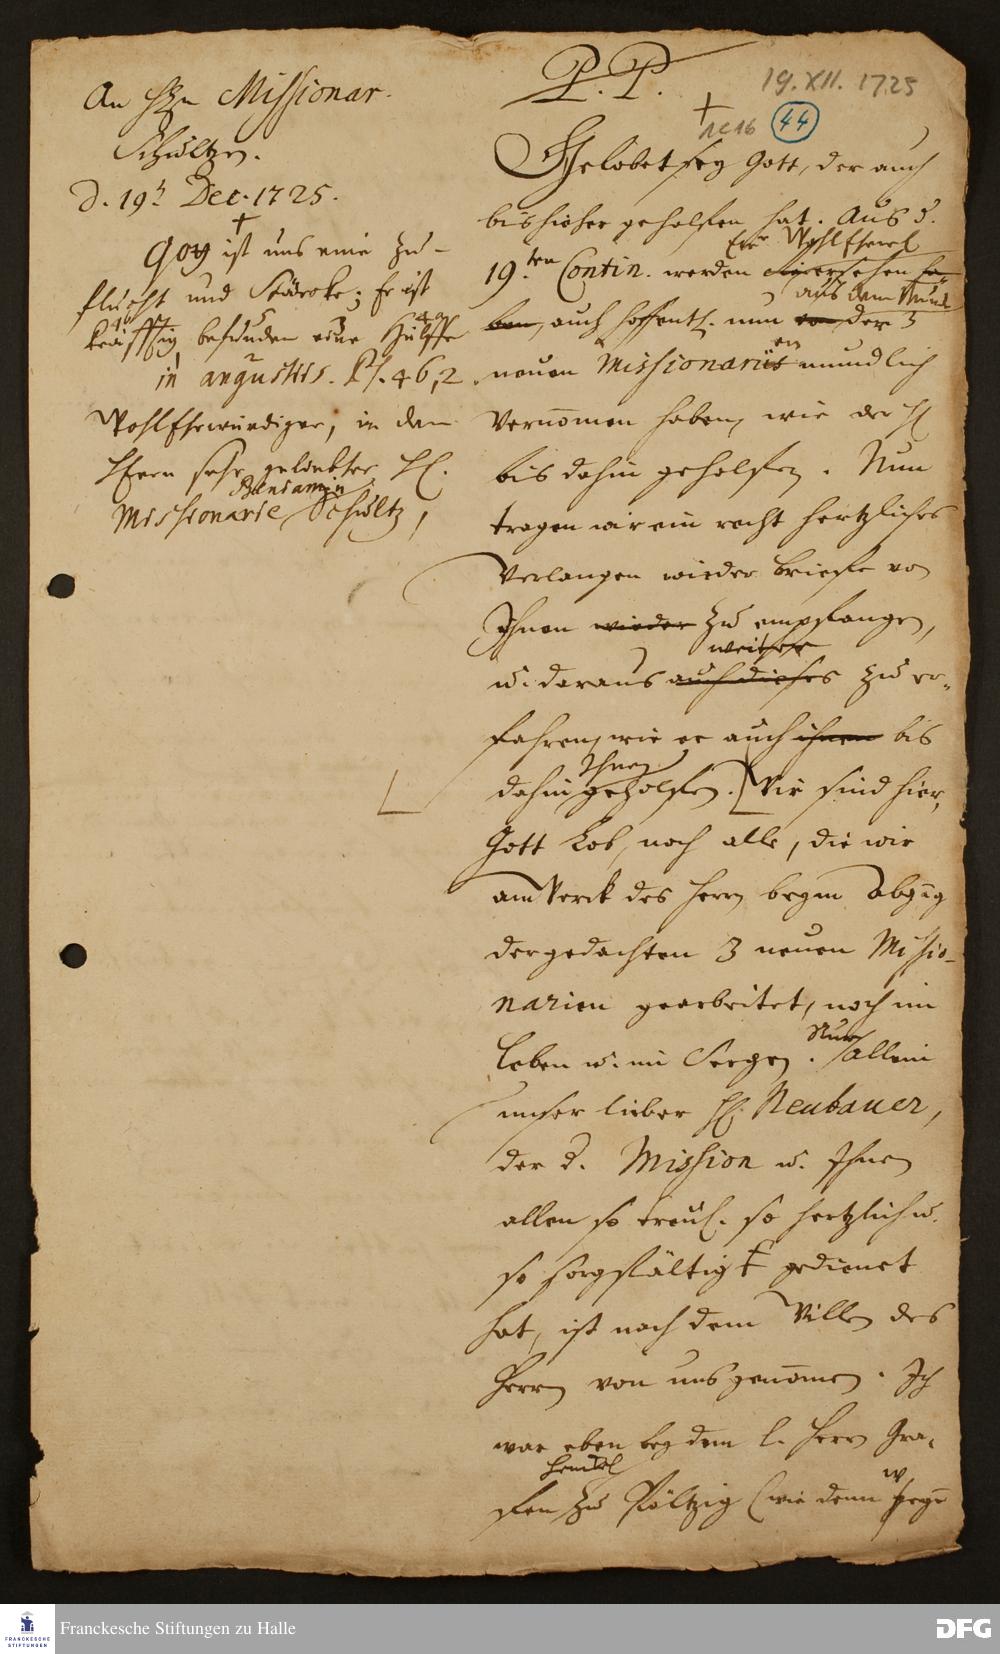 An H. Missionar.
Schultzen.
d. 19t Dec. 1725.
†
Gott ist uns eine Zu-
flucht und Stärcke; Er ist
kräfftig befunden eine Hülffe
in angustiis. Ps. 46, 2.
Wohlehrwürdiger, in dem
HErrn sehr geliebter H.
Missionarie Benjamin Schultz,
P. P.
19. XII. 1725
†
1C16 44
Gelobet sey Gott, der auch
bis hieher geholffen hat. Aus d.
Ew. WohlEhrw.
19.ten Contin. werden ersehen ha-
aus dem Mund
ben, auch hoffentl. nun von der 3
neuen Missionarien mündlich
vernommen haben, wie der H
bis dahin geholffen. Nun
tragen wir ein recht hertzliches
Verlangen wieder Brieffe von
Ihnen wieder zu empfangen,
weiter
u. daraus auch dieses zu er-
fahren, wie er auch ihnen bis
Ihnen
dahin geholffen. Wir sind hier,
Gott Lob, noch alle, die wir
am Werck des Herrn beym Abzug
der gedachten 3 neuen Missio-
narien gearbeitet, noch im
Nur
Leben u. im Seegen. Allein
unser lieber H. Neubauer,
der d. Mission u. Ihnen
allen so treul. so hertzlich u.
so sorgfältig gedienet
hat, ist nach dem Willen des
Herrn von uns genommen. Ich
war eben bey dem l. Herrn Gra-
Henckel
fen zu Pöltzig (wie denn
Franckesche Stiftungen zu Halle
DFG
FRANCKESCHE STIFTUNGEN